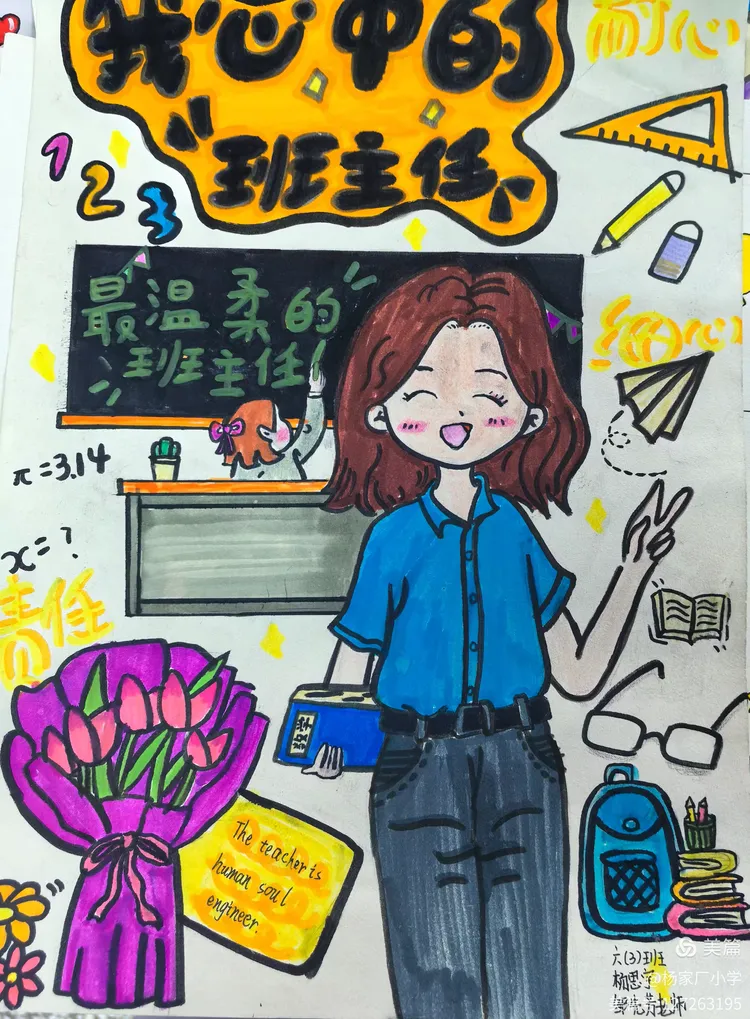 我心中的
"班主任"
耐心
1 2 3
最温柔的
班主任
细心
π=3.14
x=?
责任
数学
The teacher is
human soul
engineer.
六(3)班
美篇
杨家厂小学